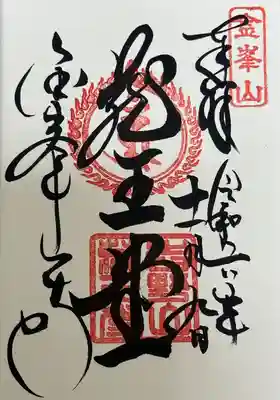 金峯山
奉拝
令和 年
十一月 日
蔵王堂
金峯山寺